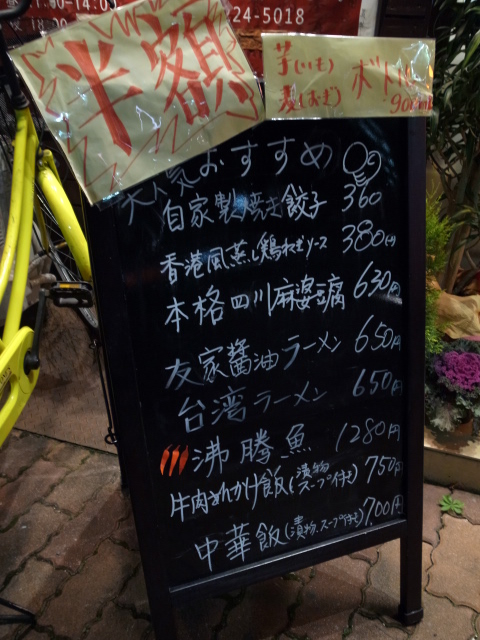 24-5018
半額
芋(いも)
麦(むぎ)
ボトル
900ml
人気おすすめ
自家製焼き餃子 360
香港風蒸し鶏ねぎソース 380円
本格四川麻婆豆腐 630円
友家醤油ラーメン 650円
台湾ラーメン 650円
沸騰魚 1280円
牛肉あんかけ飯(漬物スープ付き) 750円
中華飯(漬物、スープ付き) 700円